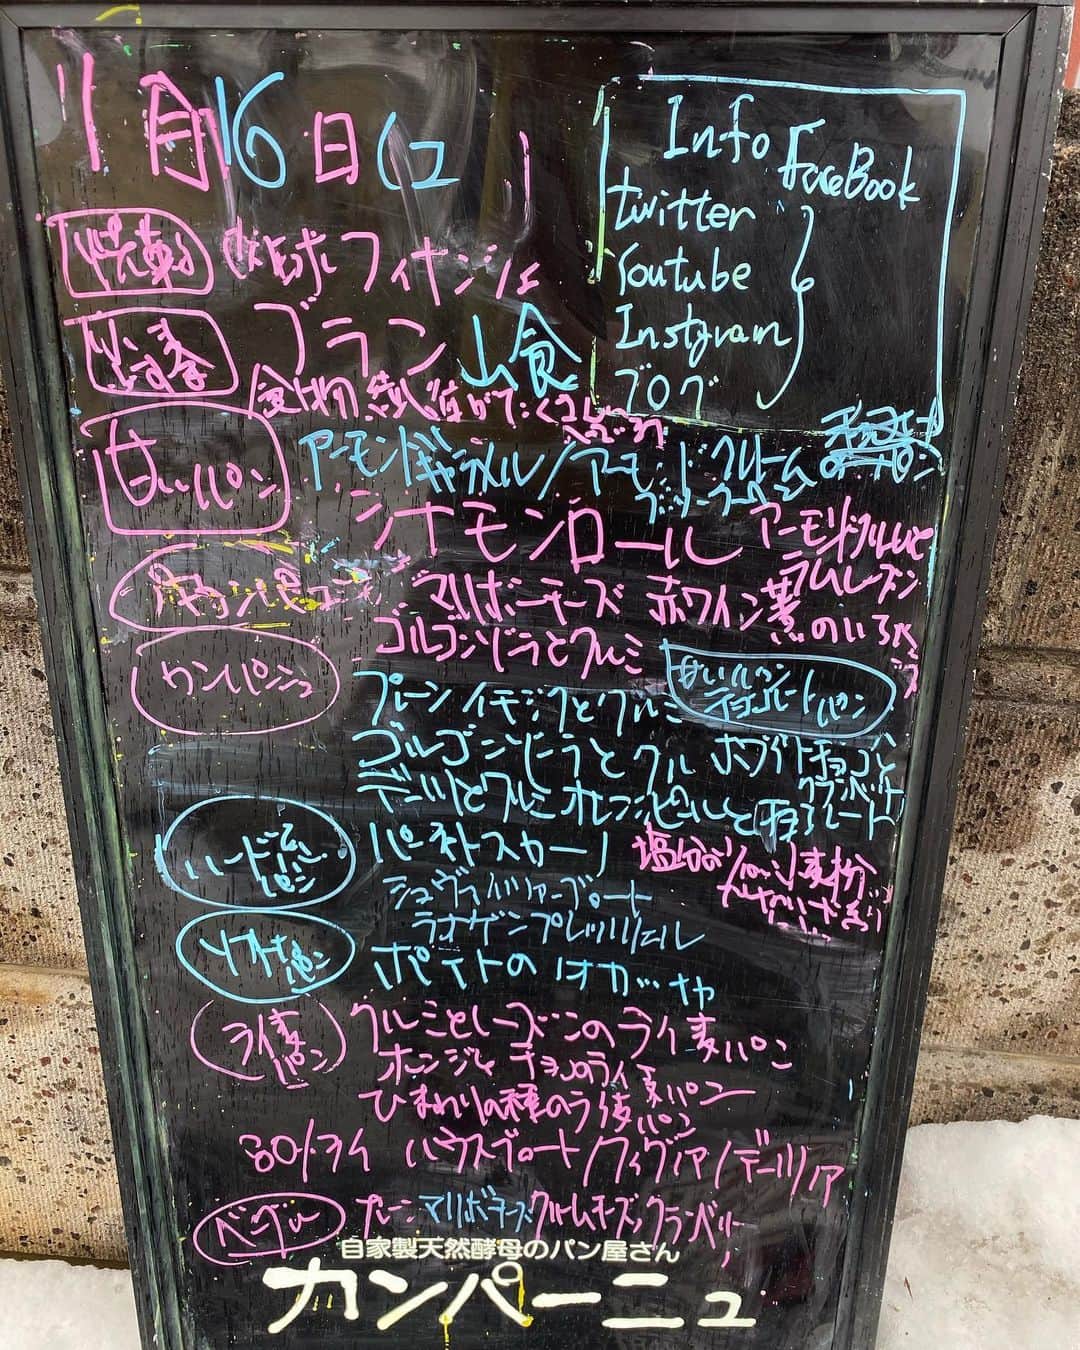 1月16日(
Info FaceBook
twitter
Youtube
Instgram
ブログ
フィナンシェ
ブラン 山食
食物繊維がたくさん
甘いパン アーモンドキャラメル/アーモンドクリーム
シナモンロール アーモンドクリームと
ラムレーズン
マリボーチーズ 赤ワイン煮のいちじく
ゴルゴンゾーラとクルミ
カンパーニュ
プレーン イチジクとクルミ
甘いパン
チョコレートパン
ゴルゴンゾーラとクルミ ホワイトチョコと
クランベリー
デーツとクルミ オレンジピールとチョコレート
ハード パン
パーネトスカーノ
塩分が
小麦粉
シュヴァイツァーブロート
ラオゲンプレッツェル
ソフトな
パン
ポテトのフォカッチャ
ライ麦
パン
クルミとレーズンのライ麦パン
オレンジとチョコのライ麦パン
ひまわりの種のライ麦パン
80%ライ ハウスブロート/フィグノア/デーツノア
ベーグル
プレーン マリボーチーズ クリームチーズ/クランベリー
自家製天然酵母のパン屋さん
カンパーニュ